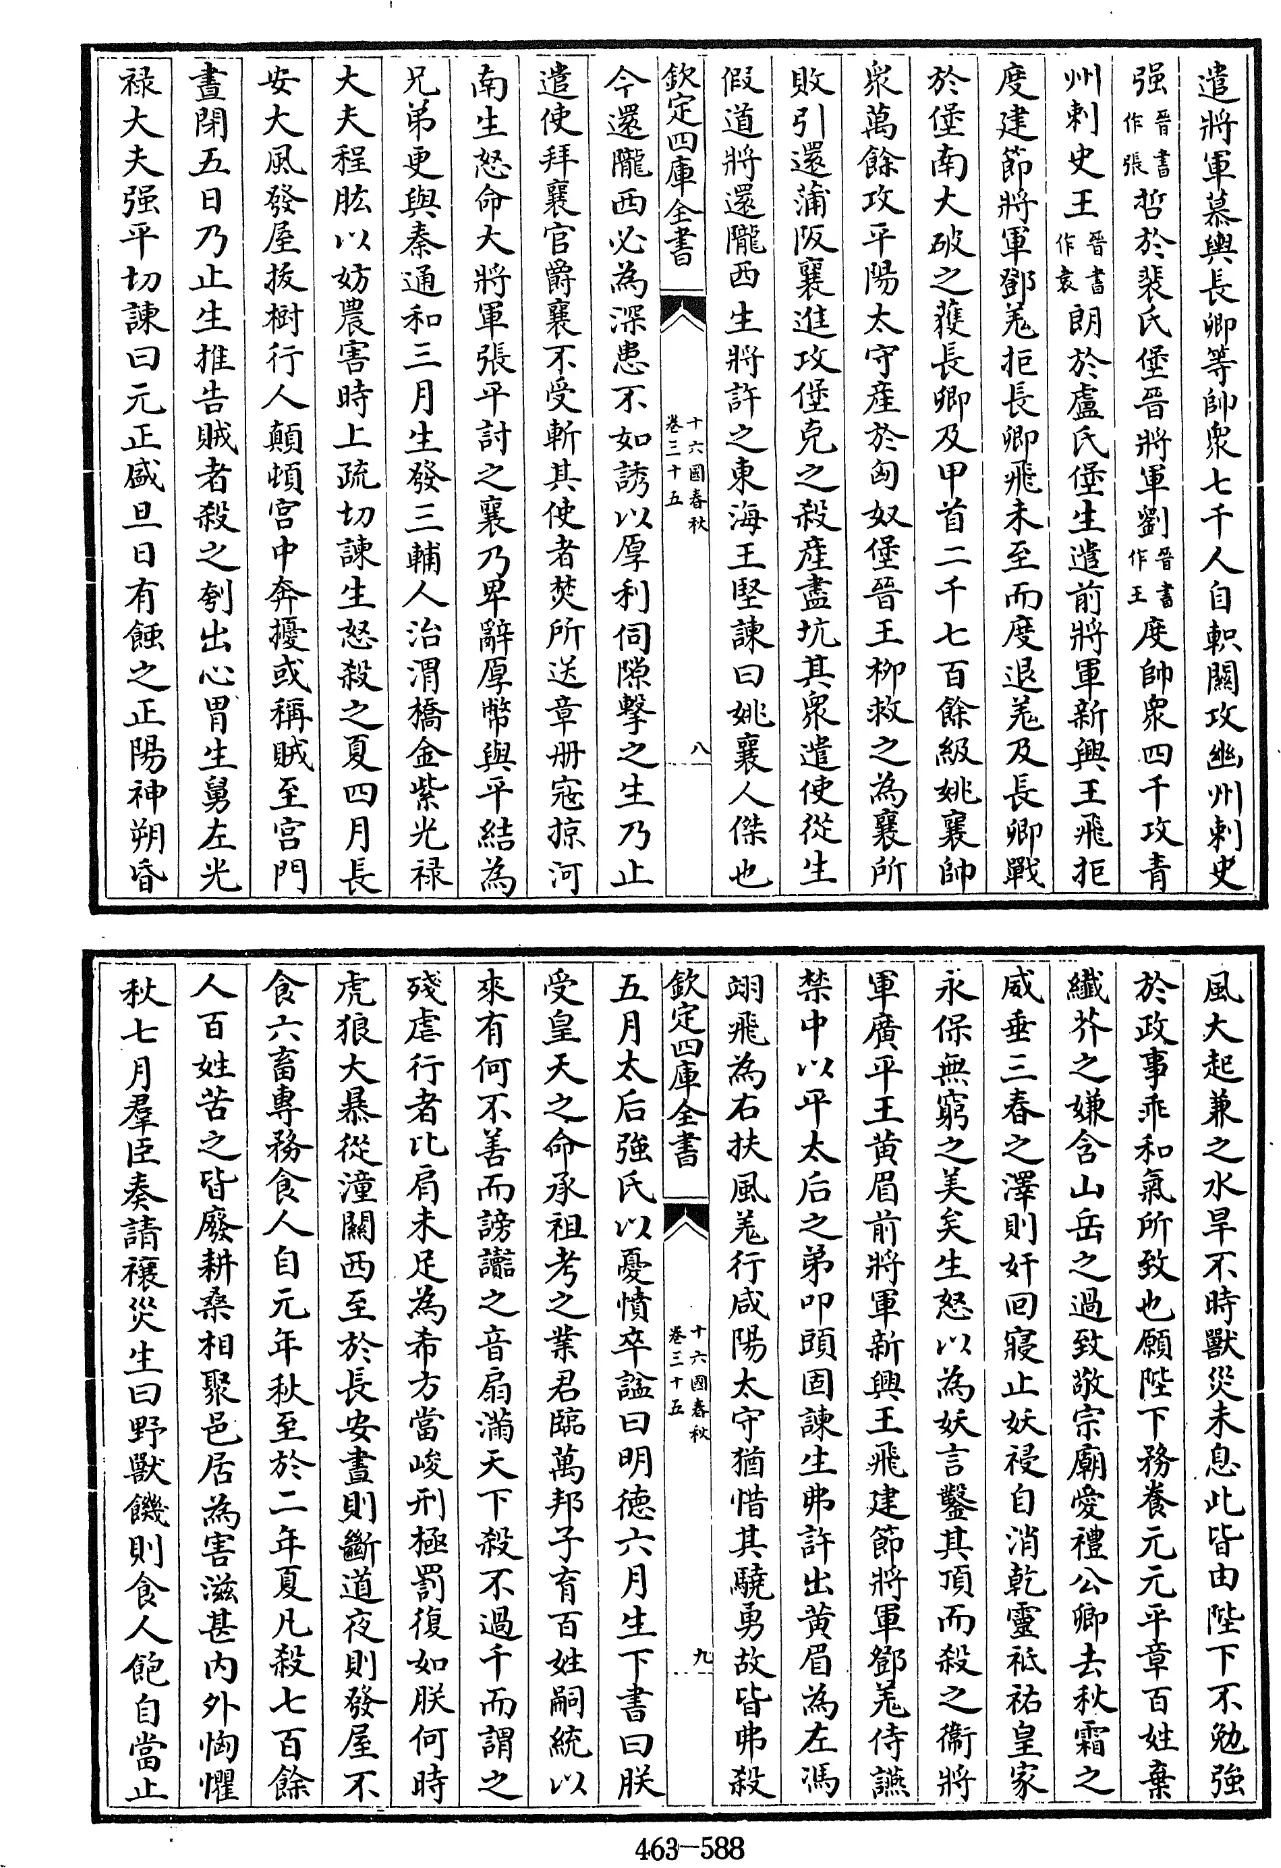 遣將軍慕輿長卿等帥衆七千人自軹關攻幽州刺史
强晉書作張哲於裴氏堡晉將軍劉晉書作王度帥衆四千攻青
州刺史王晉書作袁朗於盧氏堡生遣前將軍新興王飛拒
度建節將軍鄧羌拒長卿飛未至而度退羌及長卿戰
於堡南大破之獲長卿及甲首二千七百餘級姚襄帥
衆萬餘攻平陽太守産於匈奴堡晉王柳救之為襄所
敗引還蒲阪襄進攻堡克之殺産盡坑其衆遣使從生
假道將還隴西生將許之東海王堅諫曰姚襄人傑也
欽定四庫全書 十六國春秋 卷三十五 八
今還隴西必為深患不如誘以厚利伺隙擊之生乃止
遣使拜襄官爵襄不受斬其使者焚所送章册寇掠河
南生怒命大將軍張平討之襄乃卑辭厚幣與平結為
兄弟更與秦通和三月生發三輔人治渭橋金紫光禄
大夫程肱以妨農害時上疏切諫生怒殺之夏四月長
安大風發屋拔樹行人顛頓宫中奔擾或稱賊至宫門
晝閉五日乃止生推告賊者殺之刳出心胃生舅左光
禄大夫强平切諫曰元正盛旦日有蝕之正陽神朔昏
風大起兼之水旱不時獸災未息此皆由陛下不勉強
於政事乖和氣所致也願陛下務養元元平章百姓棄
纎芥之嫌含山岳之過致敬宗廟愛禮公卿去秋霜之
威垂三春之澤則奸回寢止妖祲自消乾靈祗祐皇家
永保無窮之美矣生怒以為妖言鑿其頂而殺之衛將
軍廣平王黄眉前將軍新興王飛建節將軍鄧羌侍讌
禁中以平太后之弟叩頭固諫生弗許出黄眉為左馮
翊飛為右扶風羌行咸陽太守猶惜其驍勇故皆弗殺
欽定四庫全書 十六國春秋 卷三十五 九
五月太后強氏以憂憤卒謚曰明德六月生下書曰朕
受皇天之命承祖考之業君臨萬邦子育百姓嗣統以
來有何不善而謗讟之音扇滿天下殺不過千而謂之
殘虐行者比肩未足為希方當峻刑極罰復如朕何時
虎狼大暴從潼關西至於長安晝則斷道夜則發屋不
食六畜專務食人自元年秋至於二年夏凡殺七百餘
人百姓苦之皆廢耕桑相聚邑居為害滋甚内外恟懼
秋七月羣臣奏請禳災生曰野獸饑則食人飽自當止
463-588